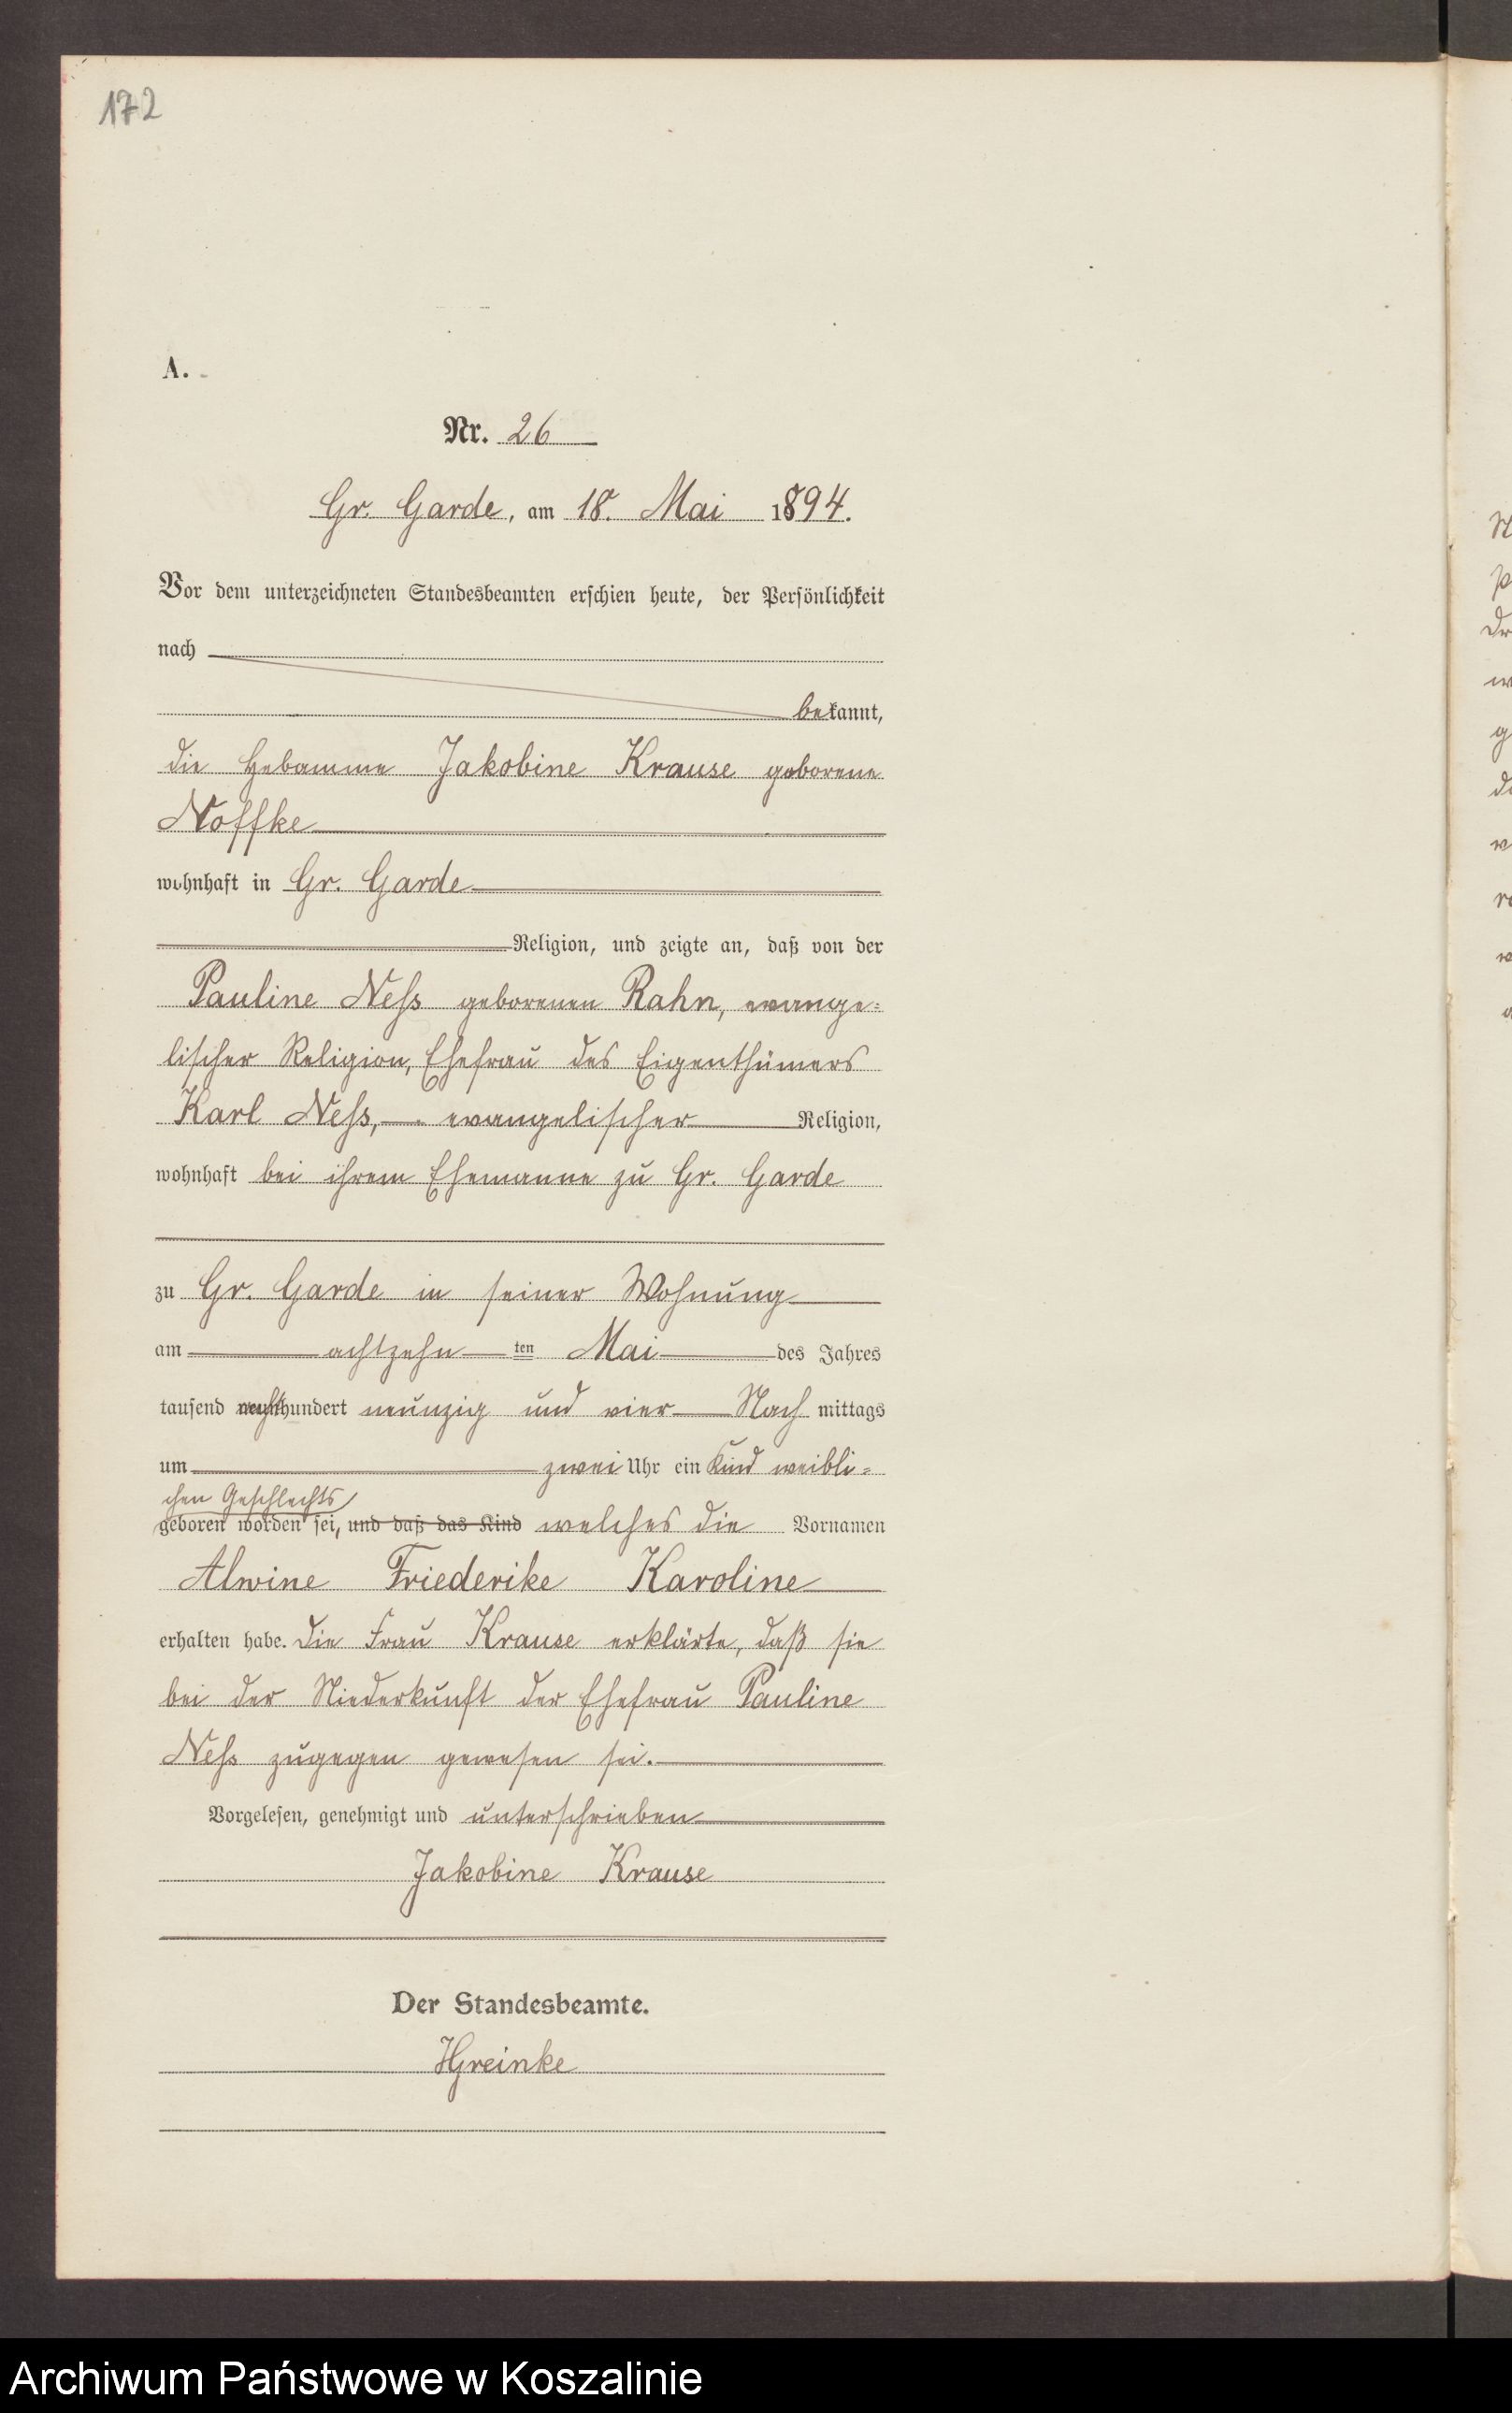 172
A.
Nr. 26
Gr. Garde, am 18. Mai 1894.
Vor dem unterzeichneten Standesbeamten erschien heute, der Persönlichkeit
nach
bekannt,
die Hebamme Jakobine Krause geborene
Noffke
wohnhaft in Gr. Garde
Religion, und zeigte an, daß von der
Pauline Ness geborenen Rahn, evange=
lischer Religion, Ehefrau des Eigenthümers
Karl Ness, evangelischer Religion,
wohnhaft bei ihrem Ehemanne zu Gr. Garde
zu Gr. Garde in seiner Wohnung
am achtzehn ten Mai des Jahres
tausend hundert neunzig und vier Nach mittags
um zwei Uhr ein Kind weibli=
chen Geschlechts
geboren worden sei, und daß das Kind welches die Vornamen
Alwine Friederike Karoline
erhalten habe. Die Frau Krause erklärte, daß sie
bei der Niederkunft der Ehefrau Pauline
Ness zugegen gewesen sei.
Vorgelesen, genehmigt und unterschrieben
Jakobine Krause
Der Standesbeamte.
HGreinke
Archiwum Państwowe w Koszalinie